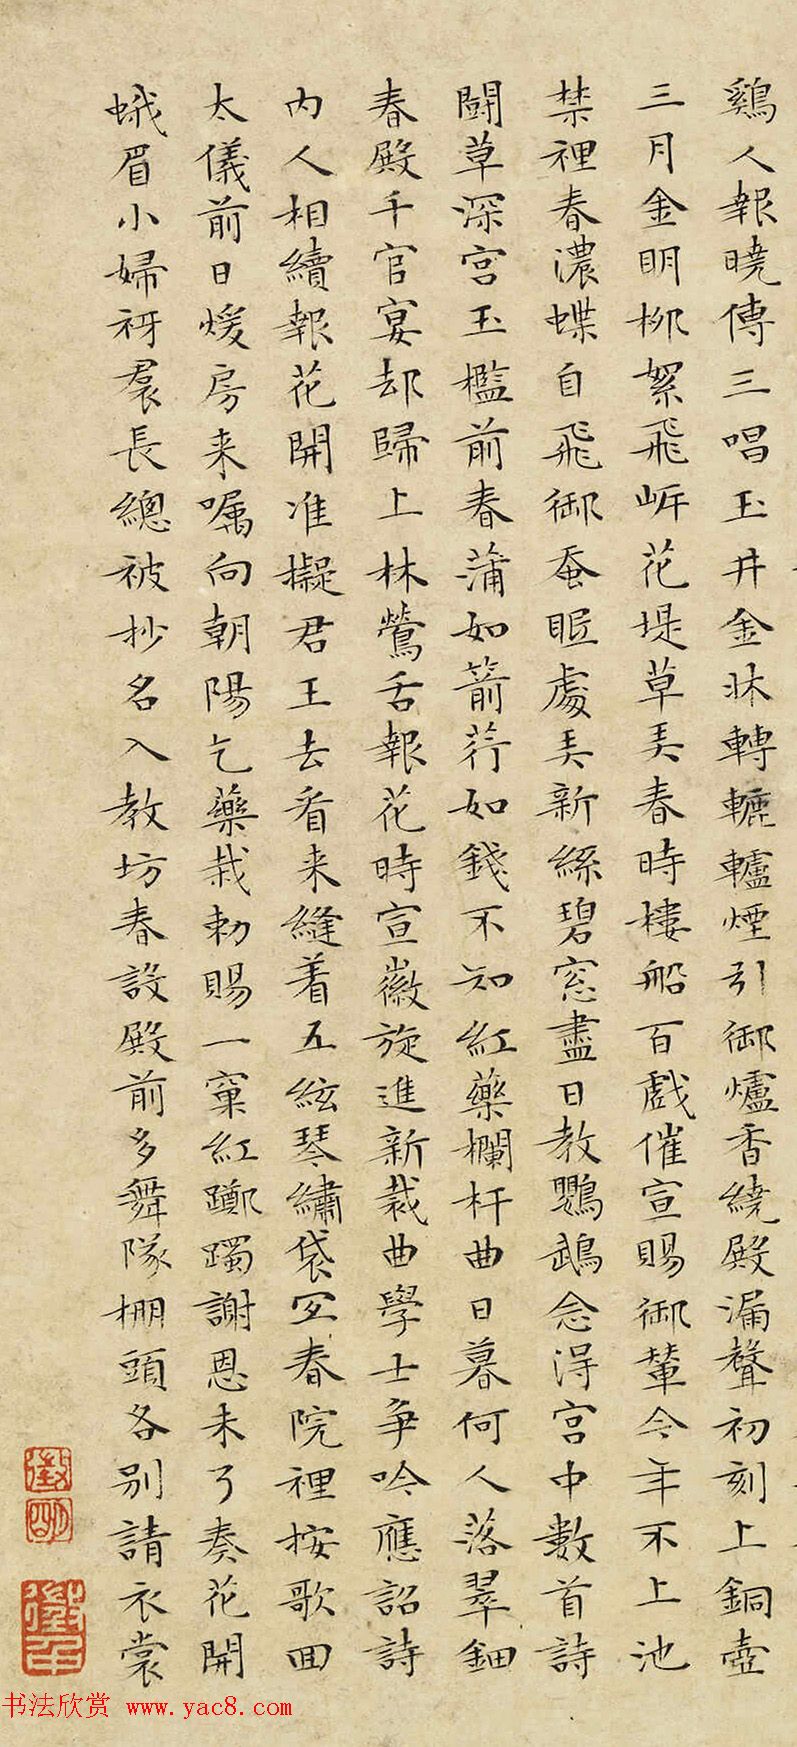 鷄人報曉傳三唱玉井金牀轉轆轤煙引御爐香繞殿漏聲初刻上銅壺
三月金明柳絮飛岍花堤草弄春時樓船百戲催宣賜御輦今年不上池
禁裡春濃蝶自飛御蚕眠處弄新絲碧窓盡日教鸚鵡念得宮中數首詩
鬭草深宮玉檻前春蒲如箭荇如錢不知紅藥欄杆曲日暮何人落翠鈿
春殿千官宴却歸上林鶯舌報花時宣徽旋進新裁曲學士爭吟應詔詩
内人相續報花開准擬君王去看来縫着五絃琴繡袋宜春院裡按歌回
太儀前日煖房来嘱向朝陽乞藥栽勅賜一窠紅躑躅謝恩未了奏花開
蛾眉小婦衩裠長總被抄名入教坊春設殿前多舞隊棚頭各別請衣裳
徵
明
书法欣赏 www.yac8.com